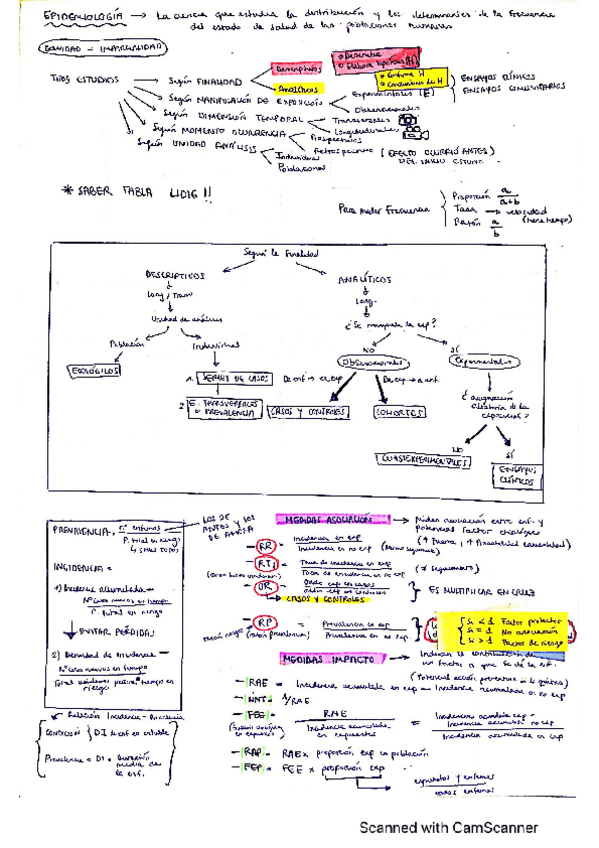 EPIDEMIOLOGÍA → La ciencia que estudia la distribución y los determinantes de la frecuencia
del estado de salud de las poblaciones humanas
CAUSALIDAD - 
TIPOS ESTUDIOS
Según FINALIDAD
Descriptivos
• Describe
• Elabora hipótesis (H)
Analíticos
• Confirma H
• Conclusiones de H
Según MANIPULACIÓN DE EXPOSICIÓN
Experimentales (E)
ENSAYOS CLÍNICOS
ENSAYOS COMUNITARIOS
Observacionales
Según DIMENSIÓN TEMPORAL
Transversales
Longitudinales
Según MOMENTO OCURRENCIA
Prospectivos
Retrospectivos (EFECTO OCURRIÓ ANTES)
DEL INICIO ESTUD.
Según UNIDAD ANÁLISIS
Individual
Poblacional
* SABER TABLA !!
Para medir Frecuencia
Proporción a/a+b
Tasa → velocidad
(tiene tiempo)
Razón a/b
Según la Finalidad
DESCRIPTIVOS
Long / Trans
Unidad de análisis
Población
Individual
ECOLÓGICOS
1. SERIES DE CASOS
2 E. TRANSVERSALES o PREVALENCIA
ANALÍTICOS
Long-
¿Se manipula la exp?
NO
SÍ
Observacionales
Experimentales
De enf → exp
De exp → enf.
CASOS Y CONTROLES
COHORTES
¿asignación
aleatoria de la
exposición?
NO
SÍ
CUASIEXPERIMENTALES
ENSAYOS
CLÍNICOS
PREVALENCIA = nº enfermos
P. total en riesgo
LOS DE
ANTES Y LOS
DE AHORA
INCIDENCIA =
1) Incidencia acumulada =
Nº casos nuevos en tiempo
P. total en riesgo
EVITAR PÉRDIDAS
2) Densidad de incidencia =
Nº casos nuevos en tiempo
tiempo en
riesgo
Relación Incidencia - Prevalencia
CONDICIÓN } DI de enf es estable
Prevalencia = DI × duración
media de
la enf.
MEDIDAS ASOCIACIÓN → Miden asociación entre enf. y
potencial factor etiológico
(↑ Fuerza, ↑ Probabilidad causalidad)
- RR = Incidencia en exp
Incidencia en no exp
- RTI = Tasa de incidencia en exp
Tasa de incidencia en no exp
(≠ seguimiento)
- OR = Odds exp en casos
Odds exp en controles
} ES MULTIPLICAR EN CRUZ
→ CASOS Y CONTROLES
- RP = Prevalencia en exp
(razón prevalencia)
Prevalencia en no exp
Si < 1 Factor protector
Si = 1 No asociación
Si > 1 Factor de riesgo
MEDIDAS IMPACTO → Indican la contribución de
un factor a que se dé la enf.
- RAE = Incidencia acumulada en exp - Incidencia acumulada en no exp
- NNT = 1/RAE
- FEE = RAE
Incidencia acumulada
en expuestos
= Incidencia acumulada exp -
Incidencia acumulada no exp
Incidencia acumulada en exp
(Fracción etiológica
en expuestos)
- RAP = RAE × proporción exp en población
- FEP = FEE × proporción exp
expuestos y enfermos
todos enfermos
Scanned with CamScanner